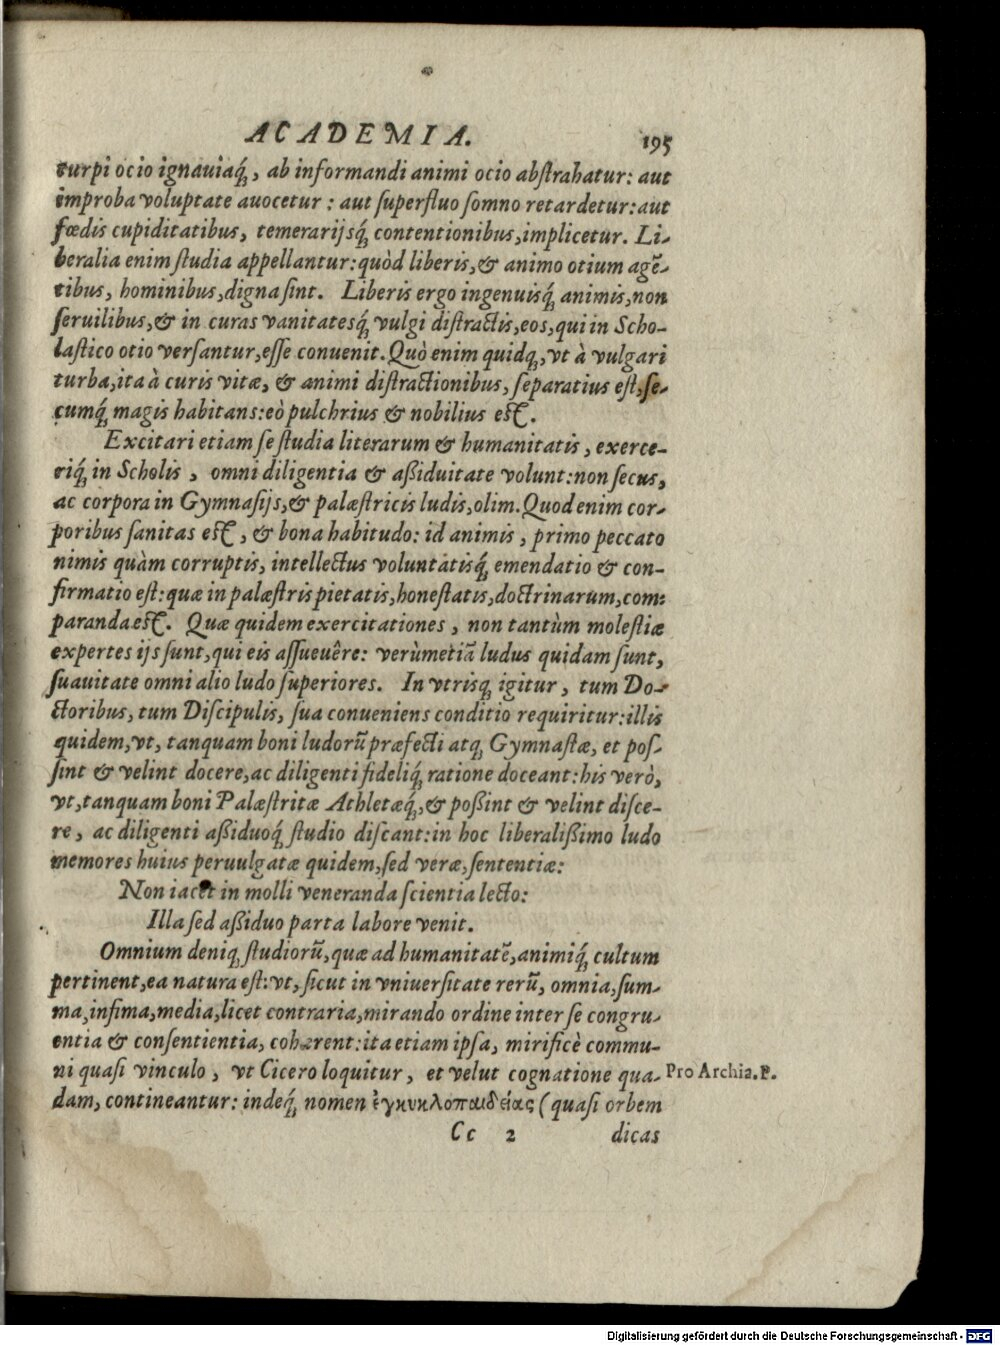 ACADEMIA. 195
turpi ocio ignauiaq́, ab informandi animi ocio abſtrahatur: aut
improba voluptate auocetur : aut ſuperfluo ſomno retardetur: aut
fœdis cupiditatibus, temerarijsq́ contentionibus, implicetur. Li-
beralia enim ſtudia appellantur: quòd liberis, & animo otium agē-
tibus, hominibus, digna ſint. Liberis ergo ingenuisq́ animis, non
ſeruilibus, & in curas vanitatesq́ vulgi diſtractis, eos, qui in Scho-
laſtico otio verſantur, eſſe conuenit. Quò enim quidq, vt à vulgari
turba, ita à curis vitæ, & animi diſtractionibus, ſeparatius eſt, ſe-
cumq́ magis habitans: eò pulchrius & nobilius eſt.
Excitari etiam ſe ſtudia literarum & humanitatis, exerce-
riq́ in Scholis , omni diligentia & aßiduitate volunt: non ſecus,
ac corpora in Gymnaſijs, & palæſtricis ludis, olim. Quod enim cor-
poribus ſanitas eſt , & bona habitudo: id animis , primo peccato
nimis quàm corruptis, intellectus voluntatisq́ emendatio & con-
firmatio eſt: quæ in palæſtris pietatis, honeſtatis, doctrinarum, com-
paranda eſt. Quæ quidem exercitationes , non tantùm moleſtiæ
expertes ijs ſunt, qui eis aſſueuêre: verùmetiā ludus quidam ſunt,
ſuauitate omni alio ludo ſuperiores. In vtrisq igitur , tum Do-
ctoribus, tum Diſcipulis, ſua conueniens conditio requiritur: illis
quidem, vt, tanquam boni ludorū præfecti atq Gymnaſtæ, et poſ-
ſint & velint docere, ac diligenti fideliq́ ratione doceant: his verò,
vt, tanquam boni Palæſtritæ Athletæq́, & poßint & velint diſce-
re , ac diligenti aßiduoq́ ſtudio diſcant: in hoc liberalißimo ludo
memores huius peruulgatæ quidem, ſed veræ, ſententiæ:
Non iacet in molli veneranda ſcientia lecto:
Illa ſed aßiduo parta labore venit.
Omnium deniq ſtudiorū, quæ ad humanitatē, animiq́ cultum
pertinent, ea natura eſt: vt, ſicut in vniuerſitate rerū, omnia, ſum-
ma, infima, media, licet contraria, mirando ordine inter ſe congru-
entia & conſentientia, cohærent: ita etiam ipſa, mirificè commu-
ni quaſi vinculo , vt Cicero loquitur, et velut cognatione qua- Pro Archia. P.
dam, contineantur: indeq́ nomen ἐγκυκλοπαιδείας ( quaſi orbem
Cc 2 dicas
Digitalisierung gefördert durch die Deutsche Forschungsgemeinschaft - DFG